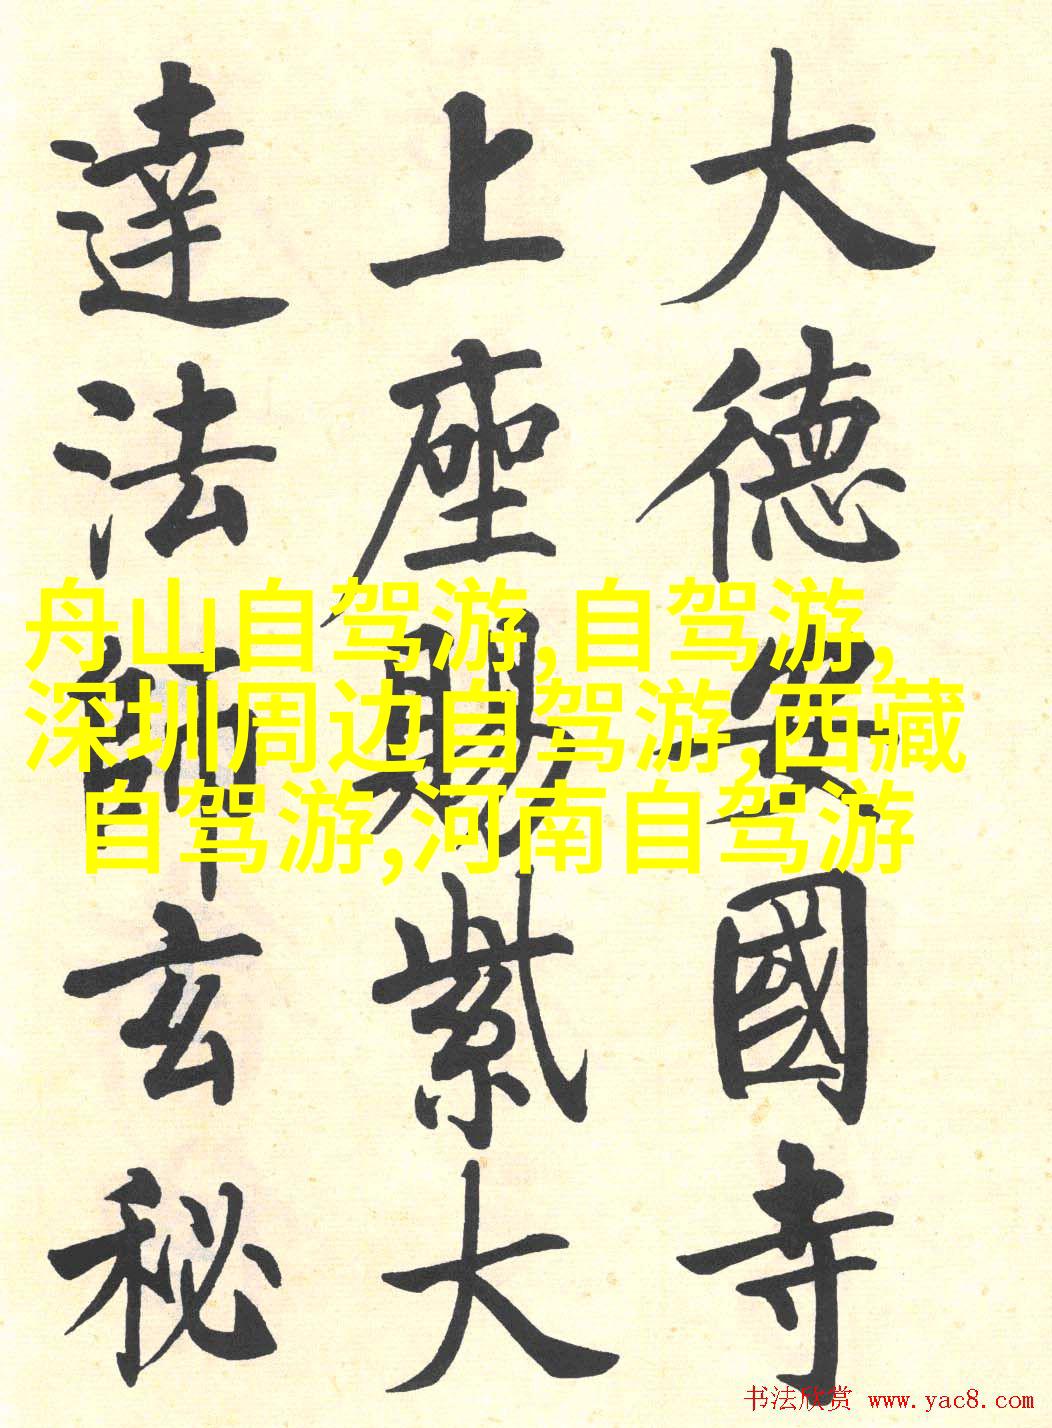 大德安國寺
上座賜紫大
達法師玄秘
舟山自驾游,自驾游,
深圳周边自驾游,西藏
自驾游,河南自驾游
书法欣赏 www.yac8.com